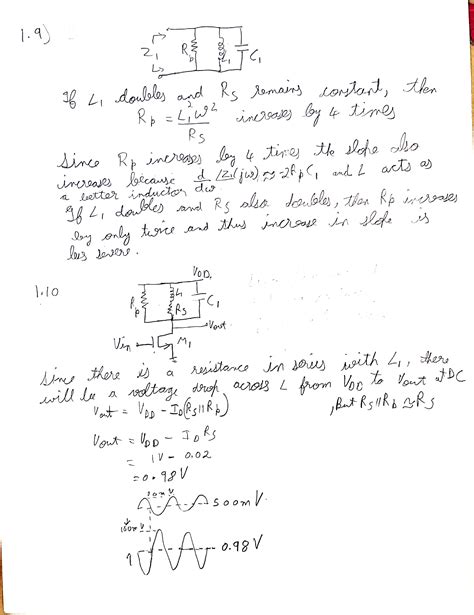 1.9)
Z1 Rp L1 C1
If L1 doubles and Rs remains constant, then
Rp = L1²ω²/Rs increases by 4 times
Since Rp increases by 4 times the slope also
increases because d/dω ∠Z1(jω) ≈ -2RpC1 and L acts as
a better inductor
If L1 doubles and Rs also doubles, then Rp increases
by only twice and thus increase in slope is
less severe.
1.10
VDD
Rp L1 Rs C1
Vout
Vin M1
Since there is a resistance in series with L1, there
will be a voltage drop across L from VDD to Vout at DC
Vout = VDD - ID(Rs||Rp) , But Rs||Rp ≅ Rs
Vout = VDD - IDRs
= 1V - 0.02
= 0.98V
500mV
0.98V